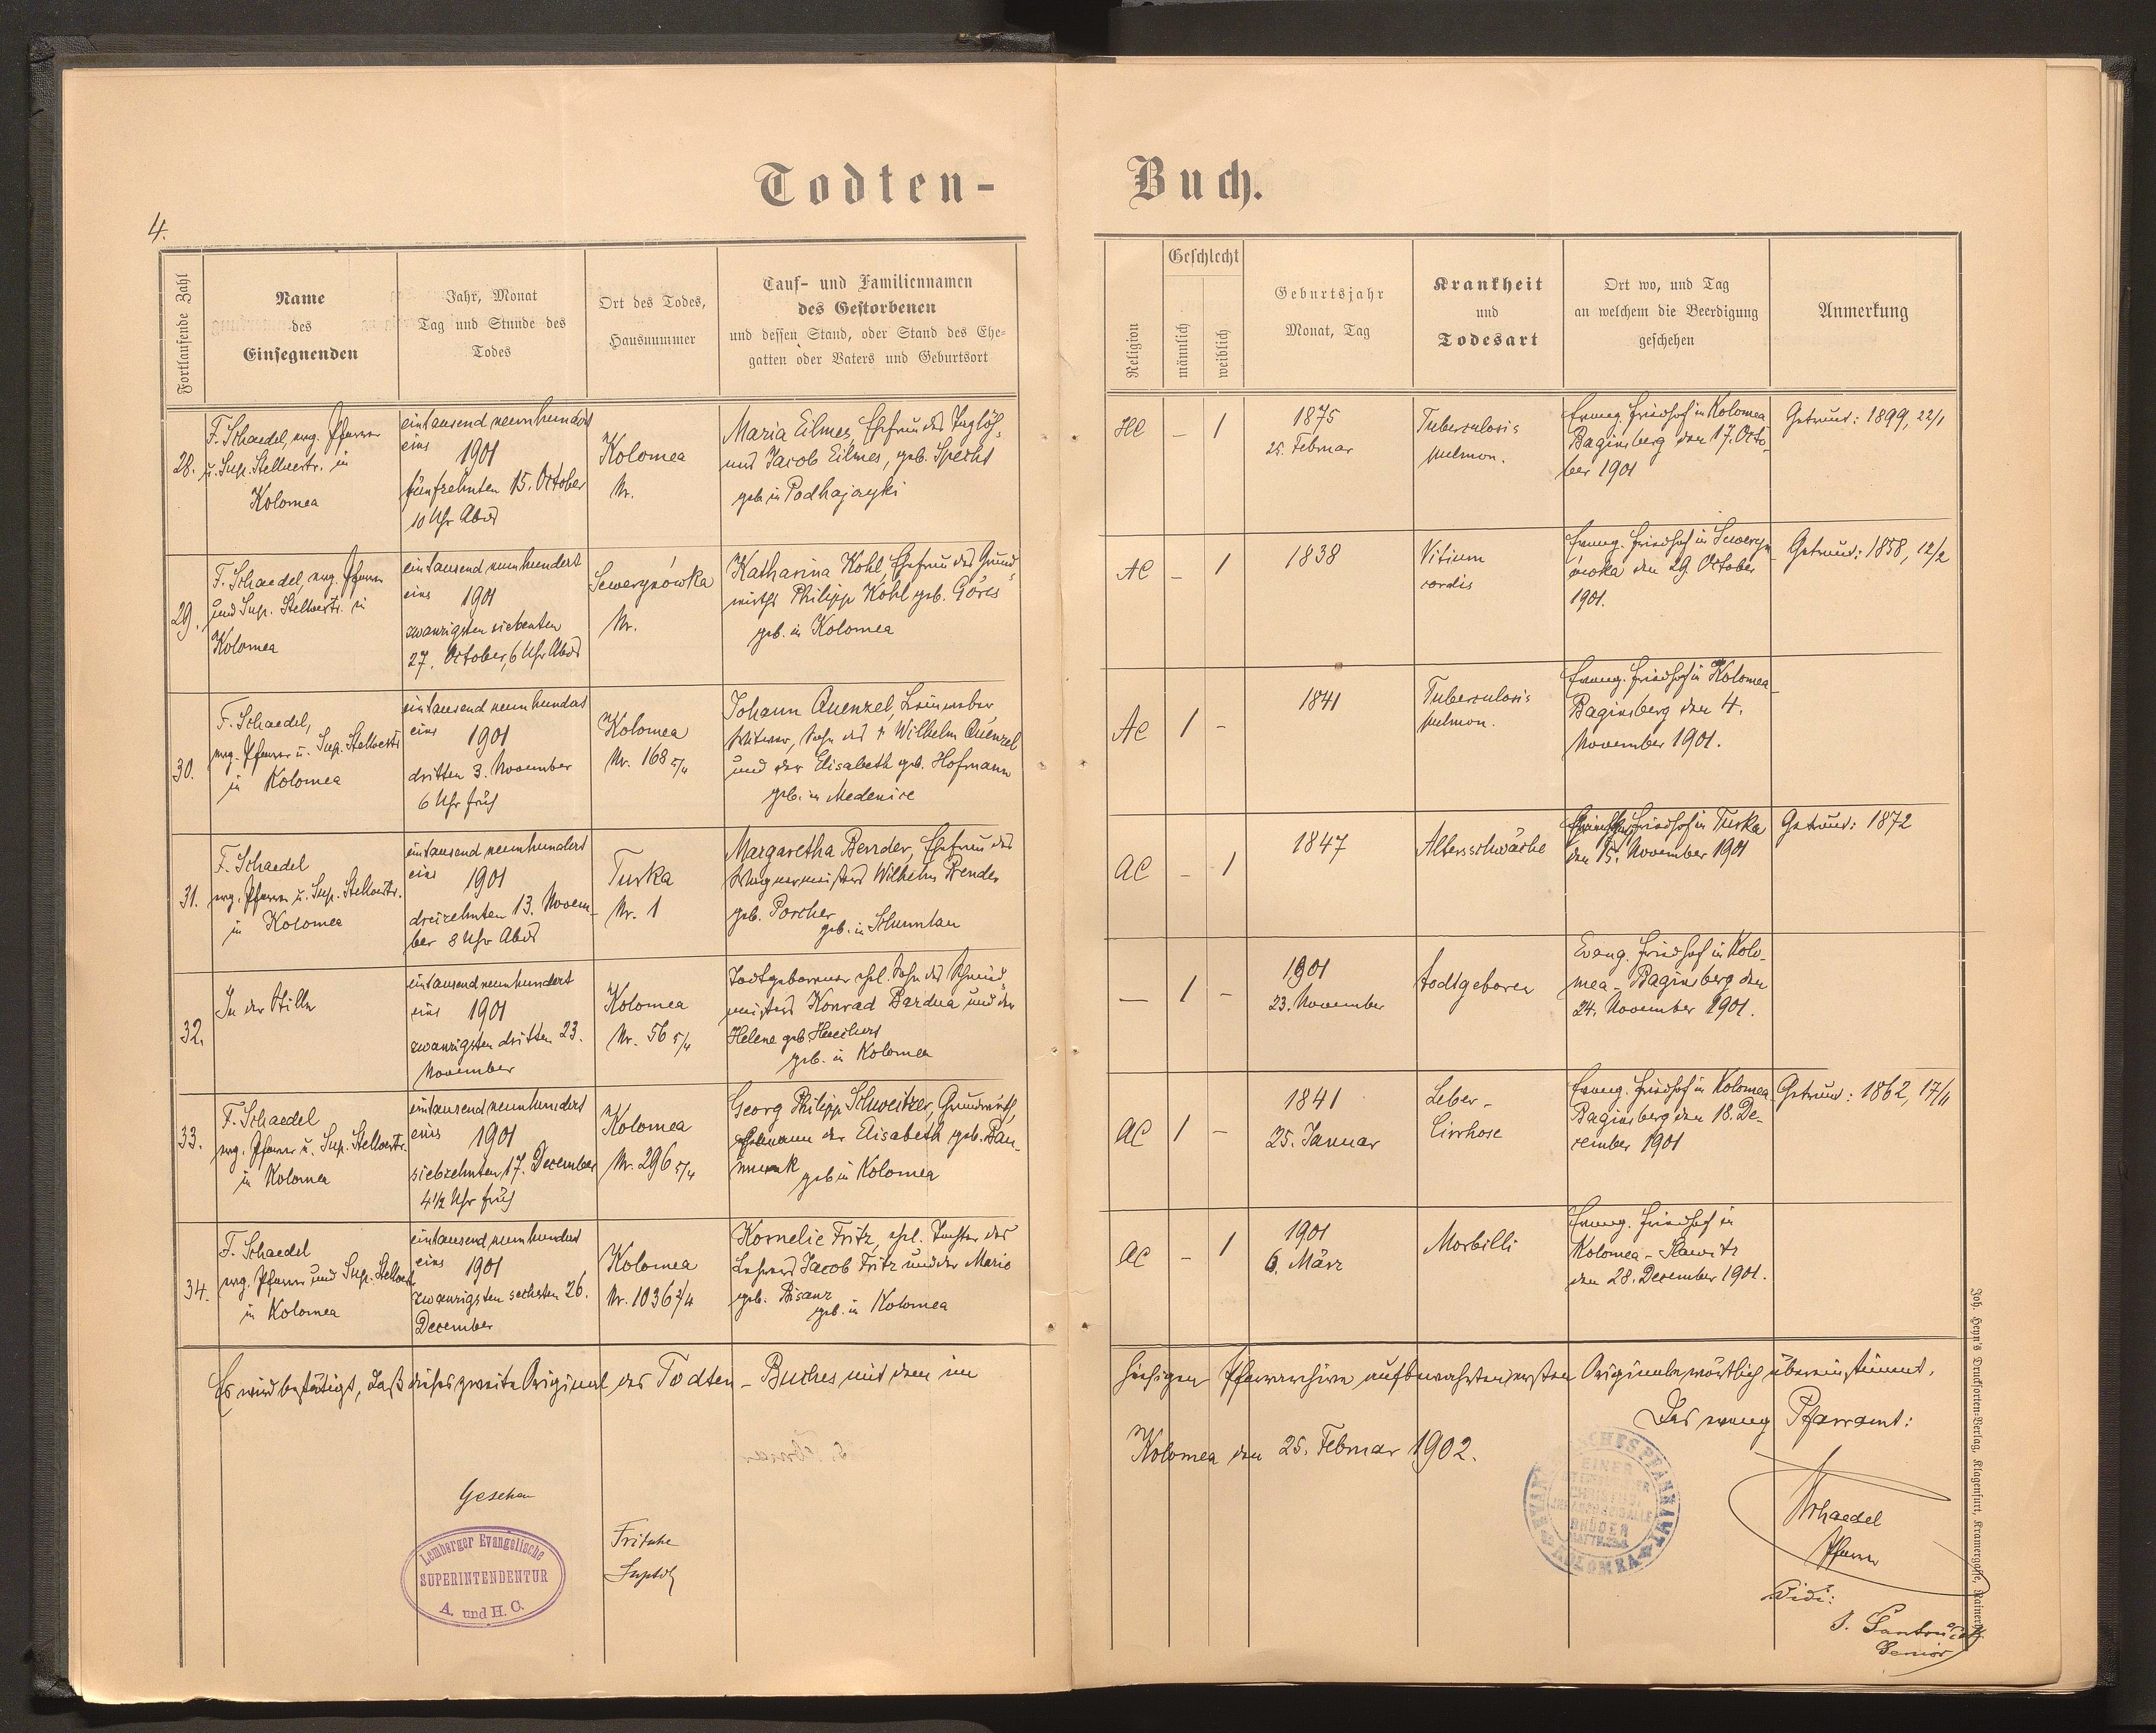 Todten-
Buch.
4.
Fortlaufende Zahl
Name
des
Einsegnenden
Jahr, Monat
Tag und Stunde des
Todes
Ort des Todes,
Hausnummer
Tauf- und Familiennamen
des Gestorbenen
und dessen Stand, oder Stand des Ehe-
gatten oder Vaters und Geburtsort
Religion
Geschlecht
männlich
weiblich
Geburtsjahr
Monat, Tag
Krankheit
und
Todesart
Ort wo, und Tag
an welchem die Beerdigung
geschehen
Anmerkung
28.
F. Schaedel, evg. Pfarrer
u. Sup. Stellvertr. in
Kolomea
eintausend neunhundert
eins 1901
fünfzehnten 15. October
10 Uhr Abds
Kolomea
Nr.
Maria Eilmes, Ehefrau des Taglöh-
ners Jacob Eilmes, geb. Specht
geb. in Podhajczyki
HC
–
1
1875
25. Februar
Tuberculosis
pulmon.
Evang. Friedhof in Kolomea
Baginsberg den 17. Octo-
ber 1901
Getraut: 1899, 22/1
29.
F. Schaedel, evg. Pfarrer
und Sup. Stellvertr. in
Kolomea
eintausend neunhundert
eins 1901
zwanzigsten siebenten
27. October, 6 Uhr Abds
Sewerynówka
Nr.
Katharina Kohl, Ehefrau des Grund-
wirths Philipp Kohl geb. Göres
geb. in Kolomea
AC
–
1
1838
Vitium
cordis
Evang. Friedhof in Seweryn-
ówka den 29. October
1901.
Getraut: 1858, 12/2
30.
F. Schaedel,
evg. Pfarrer u. Sup. Stellvertr.
in Kolomea
eintausend neunhundert
eins 1901
dritten 3. November
6 Uhr früh
Kolomea
Nr. 168 5/4
Johann Quenzel, Leinweber
Witwer, Sohn des † Wilhelm Quenzel
und der Elisabeth geb. Hofmann
geb. in Medenice
AC
1
–
1841
Tuberculosis
pulmon.
Evang. Friedhof in Kolomea-
Baginsberg den 4.
November 1901.
31.
F. Schaedel
evg. Pfarrer u. Sup. Stellvertr.
in Kolomea
eintausend neunhundert
eins 1901
dreizehnten 13. Novem-
ber 8 Uhr Abds
Turka
Nr. 1
Margaretha Bender, Ehefrau des
Wagnermeisters Wilhelm Bender
geb. Porcher
geb. in Schumlau
AC
–
1
1847
Altersschwäche
Friedhof in Turka
den 15. November 1901
Getraut: 1872
32.
In der Stille
eintausend neunhundert
eins 1901
zwanzigsten dritten 23.
November
Kolomea
Nr. 56 5/4
Todtgeborener ehl. Sohn des Schmied-
meisters Konrad Bardua und der
Helene geb.
geb. in Kolomea
—
1
–
1901
23. November
todtgeboren
Evang. Friedhof in Kolo-
mea-Baginsberg den
24. November 1901.
33.
F. Schaedel
evg. Pfarrer u. Sup. Stellvertr.
in Kolomea
eintausend neunhundert
eins 1901
siebzehnten 17. December
4½ Uhr früh
Kolomea
Nr. 296 5/4
Georg Philipp Schweitzer, Grundwirth,
Ehemann der Elisabeth geb. Bau-
munk geb in Kolomea
AC
1
–
1841
25. Januar
Leber-
Cirrhose
Evang. Friedhof in Kolomea-
Baginsberg den 18. De-
cember 1901
Getraut: 1862, 17/11
34.
F. Schaedel
evg. Pfarrer und Sup. Stellvert.
in Kolomea
eintausend neunhundert
eins 1901
zwanzigsten sechsten 26.
December
Kolomea
Nr. 1036 2/4
Kornelie Fritz, ehl. Tochter des
Lehrers Jacob Fritz und der Marie
geb. Bisanz
geb. in Kolomea
AC
–
1
1901
6. März
Morbilli
Evang. Friedhof in
Kolomea-Slawitz
den 28. December 1901.
Es wird bestätigt, daß dieses zweite Original des Todten-Buches mit dem im
hiesigen Pfarrarchive aufbewahrten ersten Originale wörtlich übereinstimmt.
Kolomea den 25. Februar 1902.
Das evang Pfarramt:
Schaedel
Pfarrer
Vidi:
Senior
Gesehen
Lemberger Evangelische
SUPERINTENDENTUR
A. und H. C.
Fritsche
Suptdt
EVANGELISCHES PFARRAMT
KOLOMEA
EINER
BRÜDER
Joh. Heyn's Drucksorten-Verlag, Klagenfurt, Kramergasse,